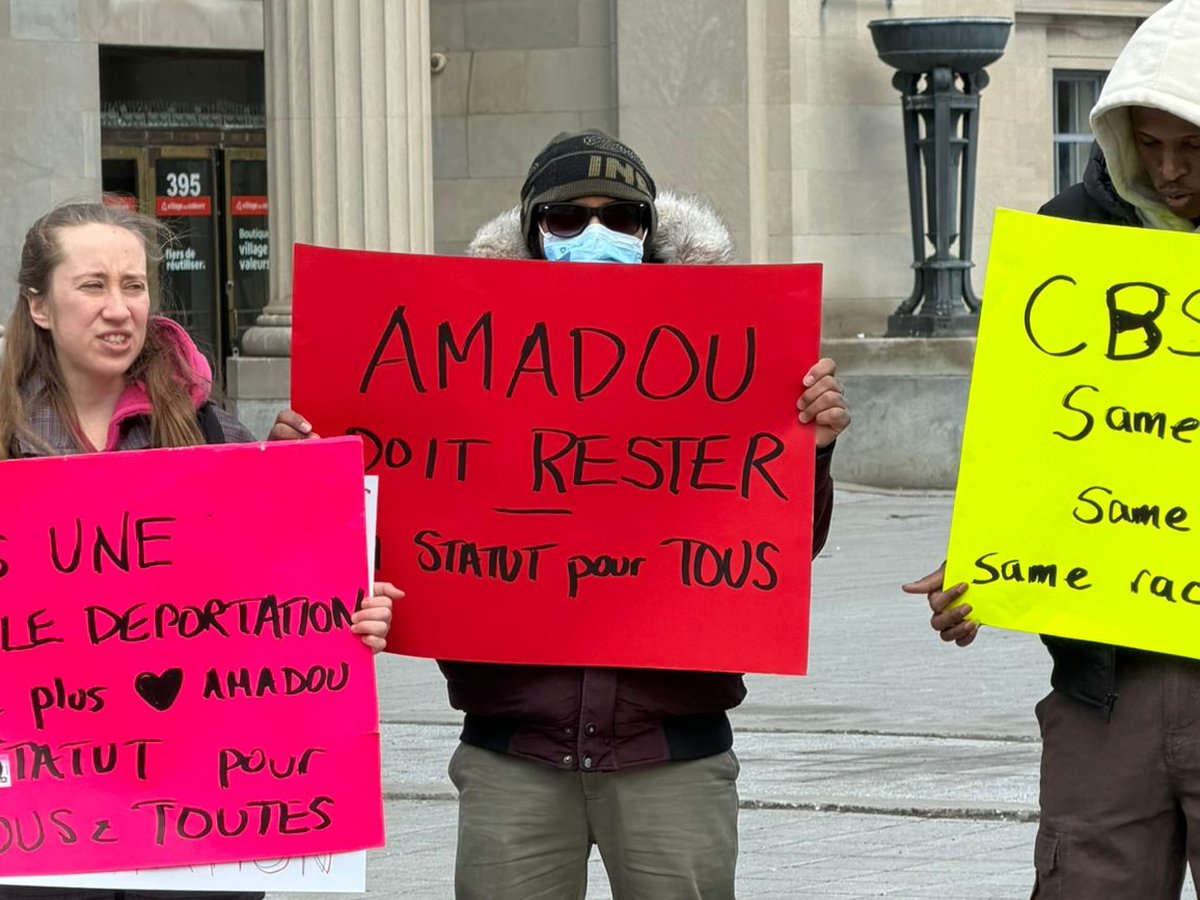 395
village des valeurs
fiers de
réutiliser.
Boutique
village
valeurs
INS
AMADOU
DOIT RESTER
STATUT pour TOUS
UNE
LE DEPORTATION
plus ♥ AMADOU
TATUT pour
OUS & TOUTES
CBS
Same
Same
same rac